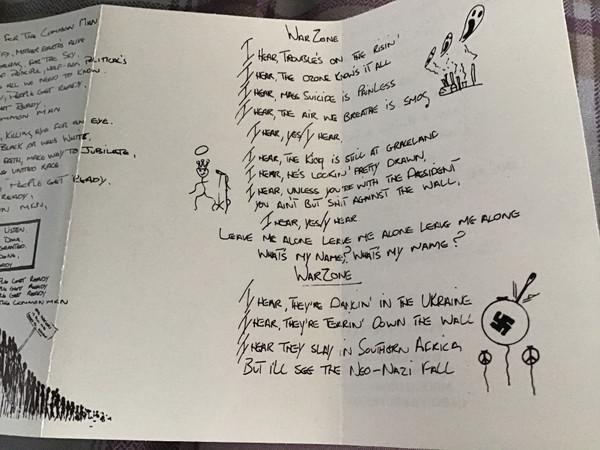 FOR THE COMMON MAN
MOTHER EARTH'S ALIVE
FOR THE SKY,
OF PEOPLE, POLITICAL'S
ALL WE NEED TO KNOW.
PEOPLE GET READY,
GET READY
COMMON MAN
KILLING EYE FOR AN EYE.
BLACK OR WHITE,
PATH, MAKE WAY TO JUBILATE,
UNITED RACE
PEOPLE GET READY,
READY,
MAN,
LISTEN,
GRANTED
READY
GET READY
GET READY
GET READY
THE COMMON MAN
WAR ZONE
I HEAR, TROUBLE'S ON THE RISIN'
I HEAR, THE OZONE KNOWS IT ALL
I HEAR, MASS SUICIDE IS PAINLESS
I HEAR, THE AIR WE BREATHE IS SMOG,
I HEAR, YES/I HEAR.
I HEAR, THE KING IS STILL AT GRACELAND
I HEAR, HE'S LOOKIN' PRETTY DRAWN,
I HEAR, UNLESS YOU'RE WITH THE PRESIDENT
YOU AIN'T BUT SHIT AGAINST THE WALL,
I HEAR, YES/I HEAR
LEAVE ME ALONE LEAVE ME ALONE LEAVE ME ALONE
WHAT'S MY NAME? WHAT'S MY NAME?
WAR ZONE
I HEAR, THEY'RE DANCIN' IN THE UKRAINE
I HEAR, THEY'RE TERRIN' DOWN THE WALL
I HEAR THEY SLAY IN SOUTHERN AFRICA
BUT I'LL SEE THE NEO-NAZI FALL